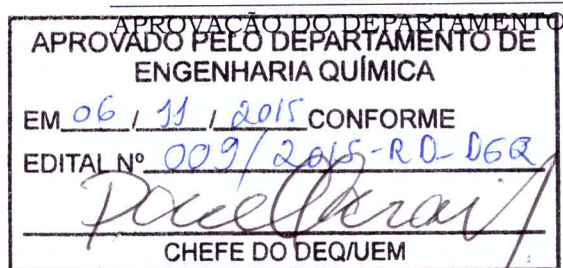 APROVAÇÃO DO DEPARTAMENTO
APROVADO PELO DEPARTAMENTO DE
ENGENHARIA QUÍMICA
EM 06 / 11 / 2015 CONFORME
EDITAL Nº 009/2015-RD-DEQ
CHEFE DO DEQ/UEM